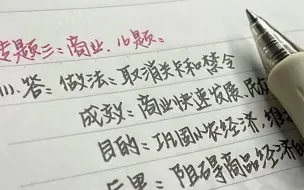 专题三：商业．16题：
(1).答：做法：取消关卡和禁令
成效：商业快速发展，民
目的：巩固小农经济，维
后果：阻碍商品经济的